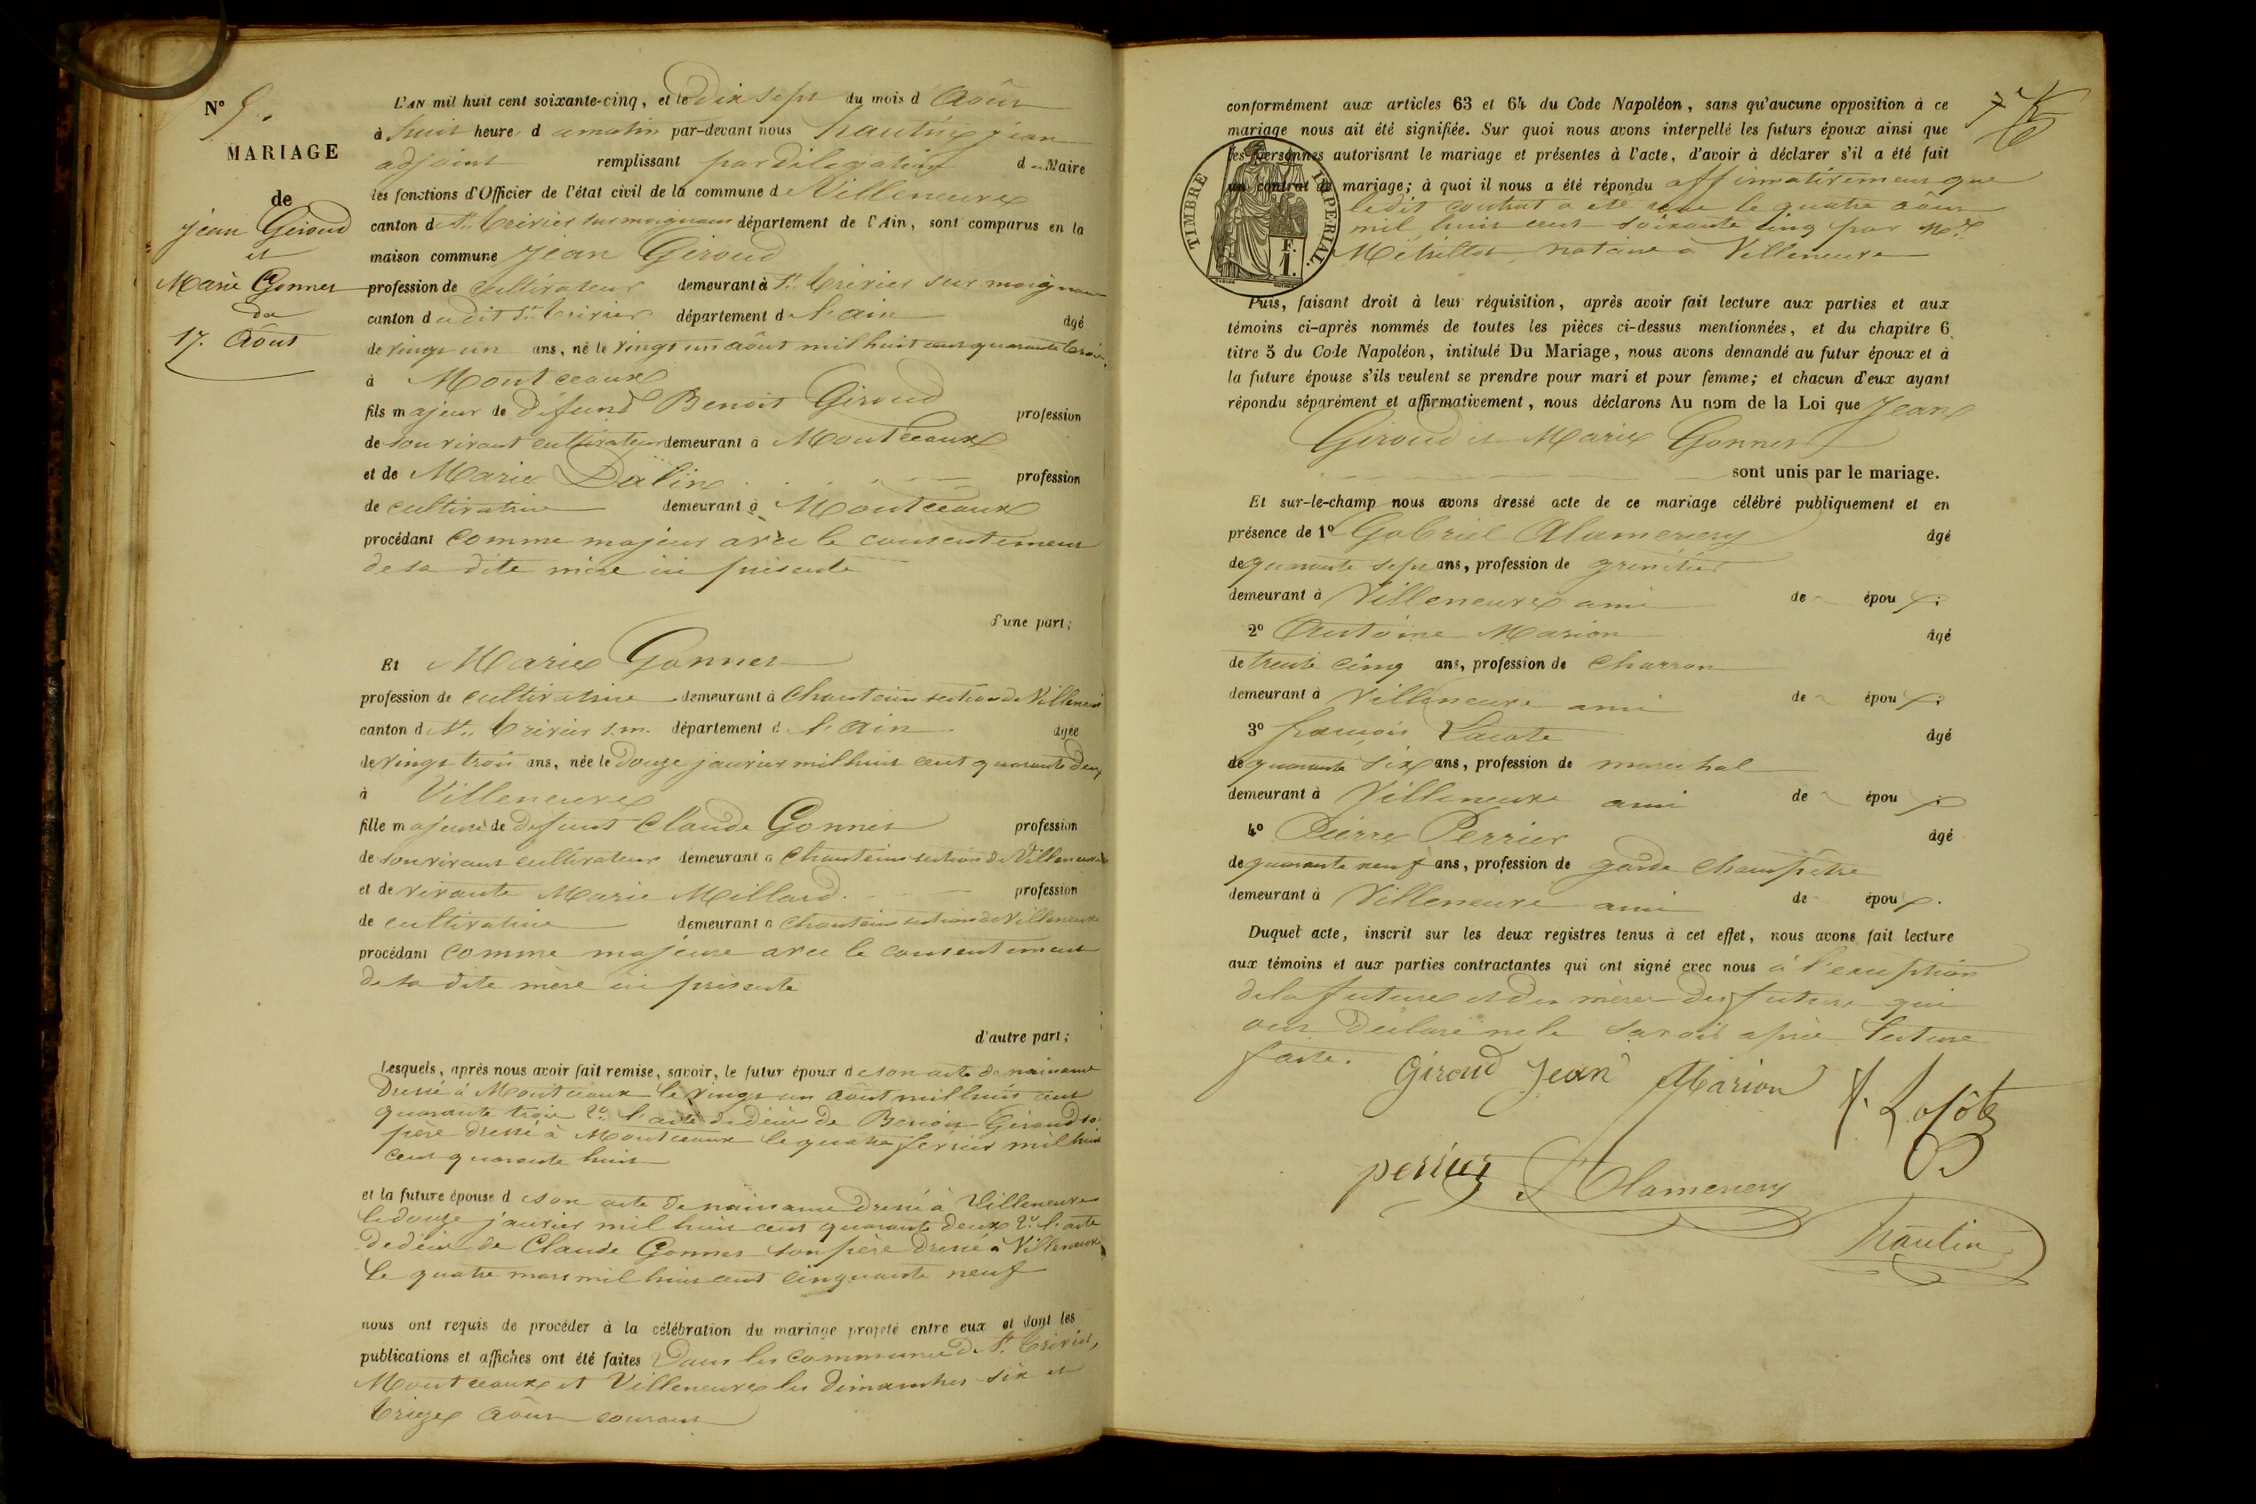 N° 5.
MARIAGE
de
jean Giroud
et
Marie Gonnet
du
17. Aôut
L'AN mil huit cent soixante-cinq, et le dix sept du mois d'Aôut
à huit heures du matin par-devant nous jean
adjoint remplissant par délégation du Maire
les fonctions d'Officier de l'état civil de la commune de Villeneuve
canton de St. Trivier sur moignans département de l'Ain, sont comparus en la
maison commune Jean Giroud
profession de Cultivateur demeurant à St. Trivier sur moignans
canton du dit St. Trivier département de l'ain âgé
de vingt un ans, né le vingt un aôut mil huit cent quarante trois
à Montceaux
fils majeur de défund Benoit Giroud profession
de son vivant cultivateur demeurant à Montceaux
et de Marie Dalin profession
de cultivatrice demeurant à Montceaux
procédant comme majeur avec le consentement
de sa dite mère ici présente
d'une part;
Et Marie Gonnet
profession de cultivatrice demeurant à Chanteins section de Villeneuve
canton de St. Trivier s.m. département de l'Ain âgée
de vingt trois ans, née le Douze janvier mil huit cent quarante deux
à Villeneuve
fille majeure de defunt Claude Gonnet profession
de son vivant cultivateur demeurant à Chanteins section de Villeneuve
et de vivante Marie Millard. profession
de cultivatrice demeurant à Chanteins section de Villeneuve
procédant comme majeure avec le consentement
de sa dite mère ici présente
d'autre part;
Lesquels, après nous avoir fait remise, savoir, le futur époux de son acte de naissance
Dressé à Montceaux le vingt un aôut mil huit cent
quarante trois 2° l'acte de décès de Benoit Giroud so
père dressé à Montceaux le quatre fevrier mil huit
cent quarante huit
et la future épouse de son acte de naissance Dressé à Villeneuve
le douze janvier mil huit cent quarante deux 2° l'acte
de décès de Claude Gonnet son père Dressé à Villeneuve
le quatre mars mil huit cent cinquante neuf
nous ont requis de procéder à la célébration du mariage projeté entre eux et dont les
publications et affiches ont été faites Dans les communes de St. Trivier,
Montceaux et Villeneuve les dimanches six et
treize Aôut courant
conformément aux articles 63 et 64 du Code Napoléon, sans qu'aucune opposition à ce
mariage nous ait été signifiée. Sur quoi nous avons interpellé les futurs époux ainsi que
les personnes autorisant le mariage et présentes à l'acte, d'avoir à déclarer s'il a été fait
un contrat de mariage; à quoi il nous a été répondu affirmativement que
ledit contrat a été reçu le quatre aôut
mil huit cent soixante cinq par Me
notaire à Villeneuve
TIMBRE IMPERIAL.
F.
1.
Puis, faisant droit à leur réquisition, après avoir fait lecture aux parties et aux
témoins ci-après nommés de toutes les pièces ci-dessus mentionnées, et du chapitre 6
titre 5 du Code Napoléon, intitulé Du Mariage, nous avons demandé au futur époux et à
la future épouse s'ils veulent se prendre pour mari et pour femme; et chacun d'eux ayant
répondu séparément et affirmativement, nous déclarons Au nom de la Loi que Jean
Giroud et Marie Gonnet
sont unis par le mariage.
Et sur-le-champ nous avons dressé acte de ce mariage célébré publiquement et en
présence de 1° Gabriel Alamercery âgé
de quarante sept ans, profession de grenetier
demeurant à Villeneuve ami de époux;
2° Antoine Marion âgé
de trente cinq ans, profession de Charron
demeurant à Villeneuve ami de époux;
3° françois Lacote âgé
de quarante six ans, profession de marechal
demeurant à Villeneuve ami de époux;
4° Pierre Perrier âgé
de quarante neuf ans, profession de garde Champêtre
demeurant à Villeneuve ami de époux.
Duquel acte, inscrit sur les deux registres tenus à cet effet, nous avons fait lecture
aux témoins et aux parties contractantes qui ont signé avec nous à l'exception
de la future et des mères des futurs qui
ont déclaré ne le savoir après lecture
faite.
Giroud Jean Marion f. Lacôte
perrier Alamercery